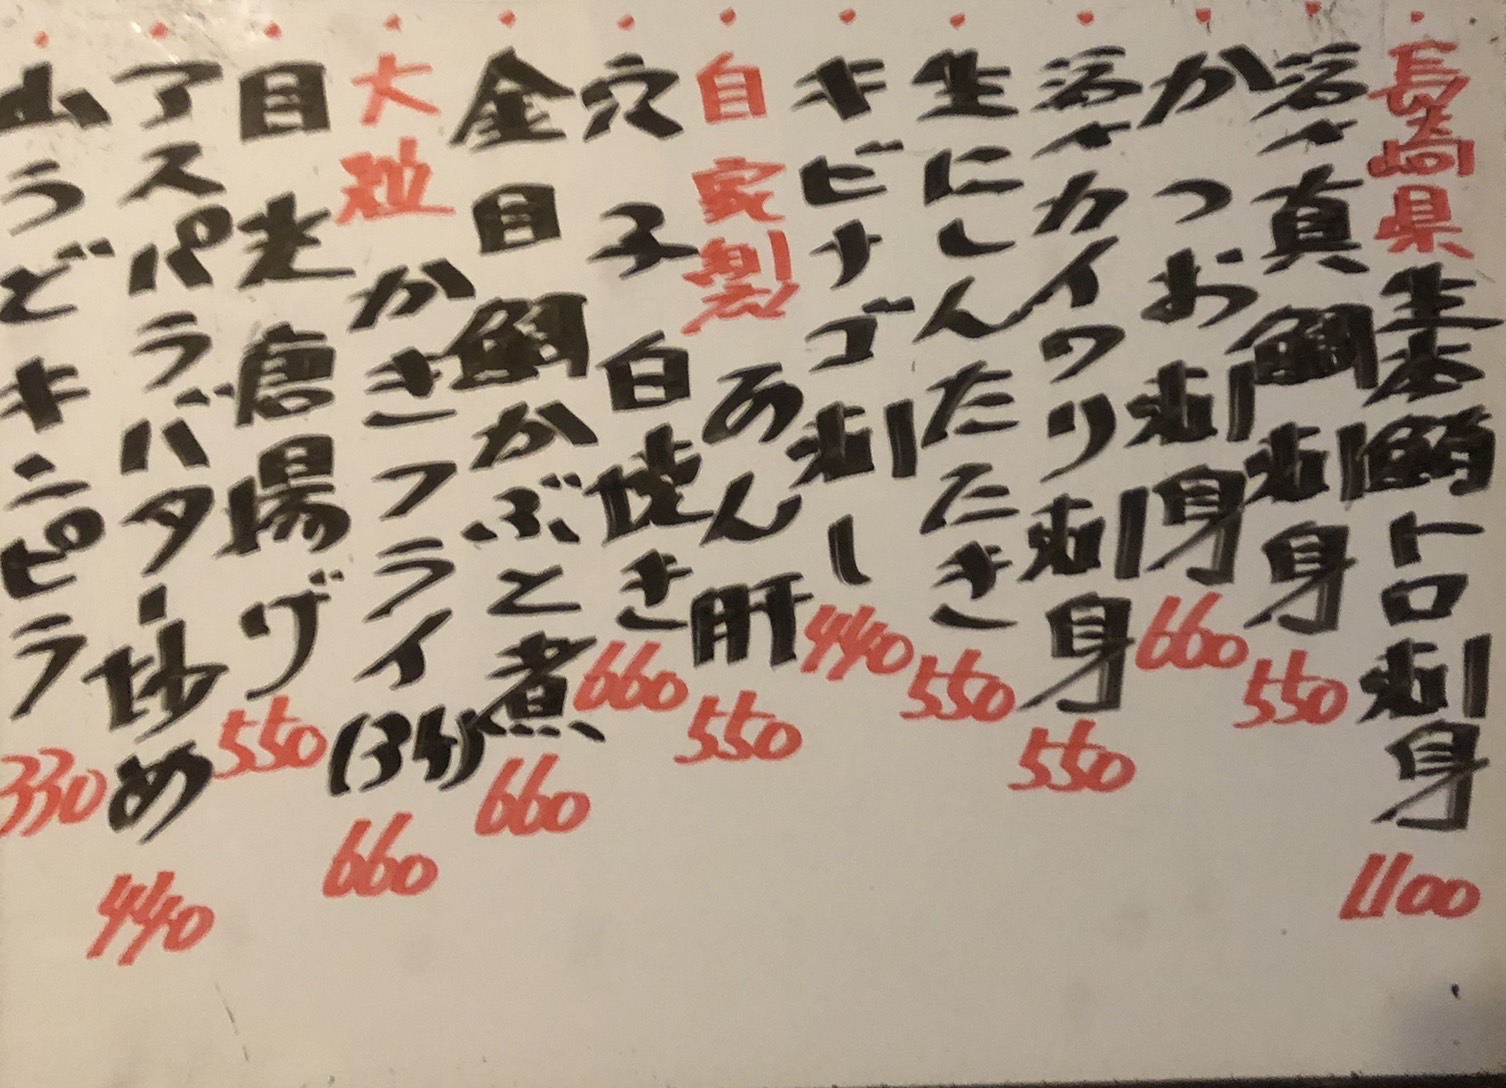 長崎県生本鮪トロ刺身 1100
活〆真鯛刺身 550
かつお刺身 660
活〆カイワリ刺身 550
生にしんたたき 550
キビナゴ刺し 440
自家製あん肝 550
穴子白焼き 660
金目鯛かぶと煮 660
大粒かきフライ(3ヶ) 660
目光唐揚げ 550
アスパラバター炒め 440
山うどキンピラ 330